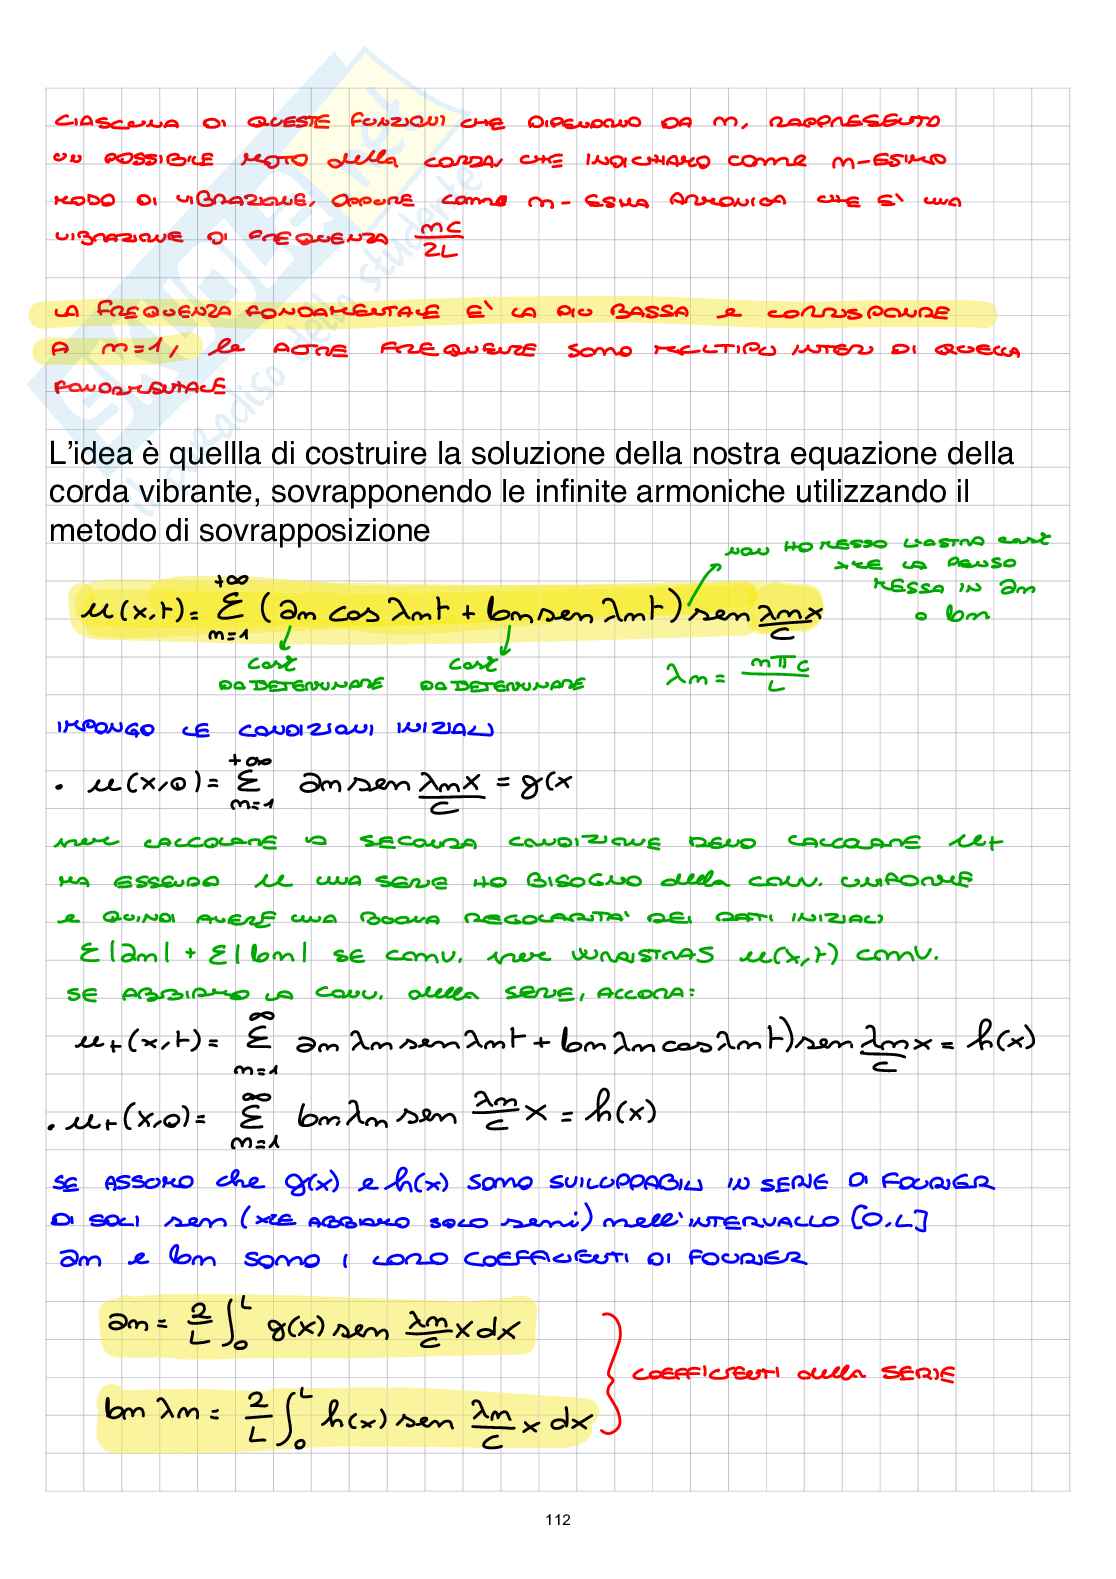 CIASCUNA DI QUESTE FUNZIONI CHE DIPENDONO DA m, RAPPRESENTO
UN POSSIBILE MOTO della CORDA, CHE INDICHIAMO come m-ESIMO
MODO DI VIBRAZIONE, OPPURE come m-ESIMA ARMONICA CHE E' UNA
VIBRAZIONE DI FREQUENZA mc/2L
LA FREQUENZA FONDAMENTALE E' LA PIÙ BASSA e CORRISPONDE
A m=1, le ALTRE FREQUENZE SONO MULTIPLI INTERI DI QUELLA
FONDAMENTALE
L'idea è quellla di costruire la soluzione della nostra equazione della
corda vibrante, sovrapponendo le infinite armoniche utilizzando il
metodo di sovrapposizione
NON HO MESSO L'ALTRA cost
XKE LA PENSO
MESSA IN am
o bm
u(x,t)= Σ_{m=1}^{+∞} (am cos λmt + bm sen λmt) sen λm x/c
cost DA DETERMINARE cost DA DETERMINARE λm = mπc/L
IMPONGO LE CONDIZIONI INIZIALI
• u(x,0)= Σ_{m=1}^{+∞} am sen λm x/c = g(x
per CALCOLARE LA SECONDA CONDIZIONE DEVO CALCOLARE ut
MA ESSENDO u UNA SERIE HO BISOGNO della CONV. UNIFORME
e QUINDI AVERE UNA BUONA REGOLARITA' DEI DATI INIZIALI
Σ|am| + Σ|bm| SE CONV. per WEIRSTRAS u(x,t) CONV.
SE ABBIAMO LA CONV. della SERIE, ALLORA:
ut(x,t)= Σ_{m=1}^{∞} am λm sen λmt + bm λm cos λmt) sen λm/c x = h(x)
• ut(x,0)= Σ_{m=1}^{∞} bm λm sen λm/c x = h(x)
SE ASSUMO che g(x) e h(x) SONO SVILUPPABILI IN SERIE DI FOURIER
DI SOLI sen (XKE ABBIAMO SOLO seni) nell'INTERVALLO [0,L]
am e bm SONO I LORO COEFFICIENTI DI FOURIER
am = 2/L ∫_0^L g(x) sen λm/c x dx
COEFFICIENTI della SERIE
bm λm = 2/L ∫_0^L h(x) sen λm/c x dx
112